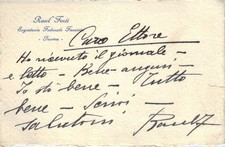 Raoul Forti
Segreteria Federale Fascista
Caro Ettore
Ho ricevuto il giornale
e letto - Bene - auguri -
Io sto bene - Tutto
bene - Scrivi -
Saluti